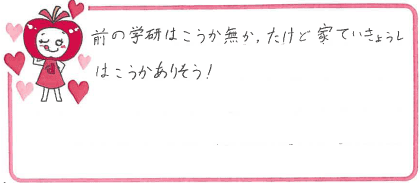 前の学研はこうか無か,たけど家ていきょうし
はこうかありそう!